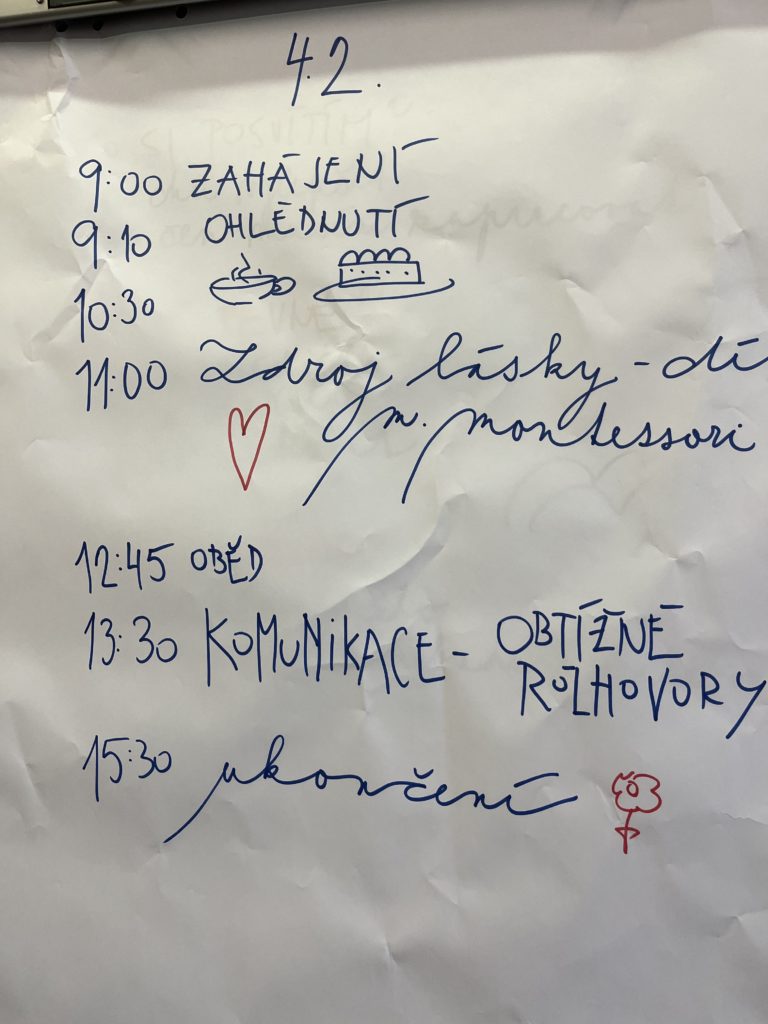 4.2.
9:00 ZAHÁJENÍ
9:10 OHLÉDNUTÍ
10:30
11:00 Zdroj lásky - dí
m. montessori
12:45 OBĚD
13:30 KOMUNiKACE - OBTÍŽNÉ
ROZHOVORY
15:30 ukončení